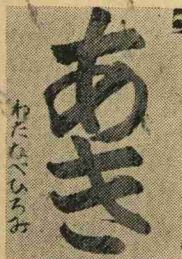 あき
わたなべひろみ